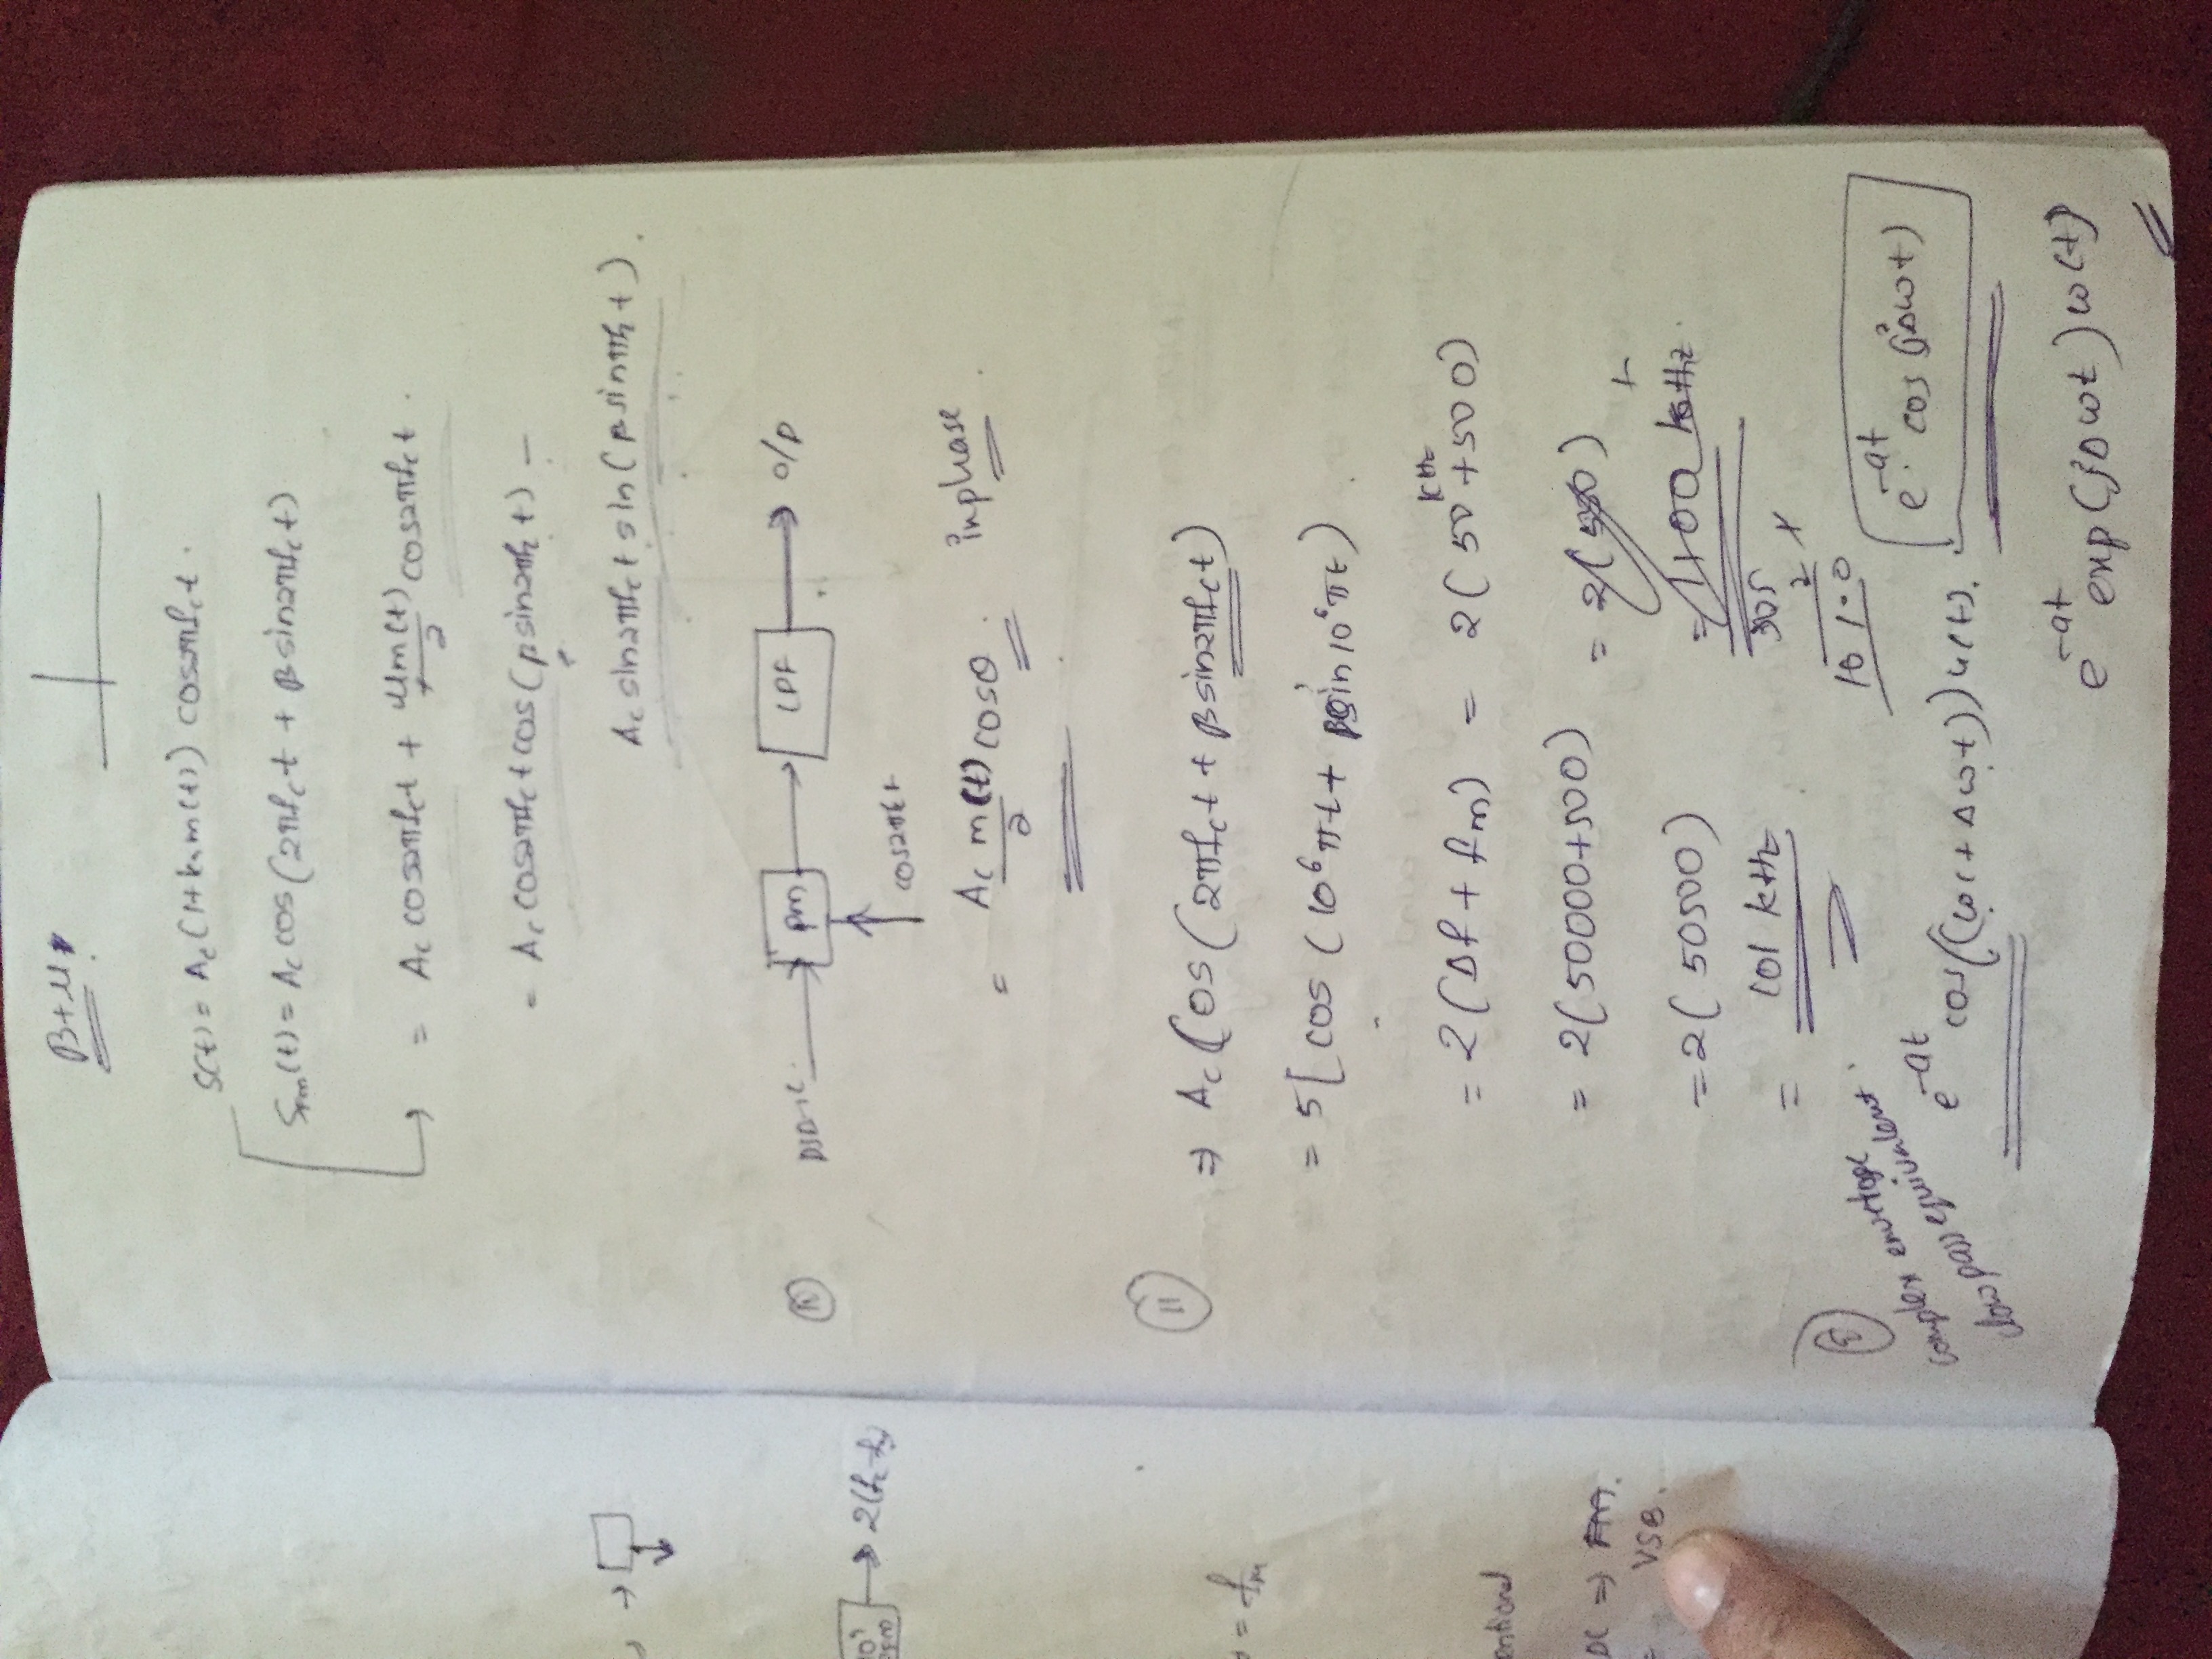 →
→ 2(fc-fm)
= fm
entional
DC ⇒ FM.
= VSB.
β+μ.
S(t) = Ac(1+kam(t)) cos2πfct.
SFM(t) = Ac cos(2πfct + βsin2πfct)
→ = Ac cos2πfct + μm(t)/2 cos2πfct.
= Ac cos2πfct cos(βsin2πfct) -
Ac sin2πfct sin(βsinπfct).
DSB-SC → pm → LPF → O/P
cos2πfct
= Ac m(t)/2 cosθ. inphase
11
⇒ Ac Cos(2πfct + βsin2πfct)
= 5[cos(10⁶πt + βsin10⁶πt).
= 2(Δf + fm) = 2(50 kHz +500)
= 2(50000+500) = 2(550)
= 2(50500) = 1100 kHz.
= 101 kHz
505
2 x
1010
complex envelope
low pass equivalent.
e^-at cos((ωc+Δωt))u(t).
e^-at cos(jΔωt)
e^-at exp(jΔωt)ω(t)